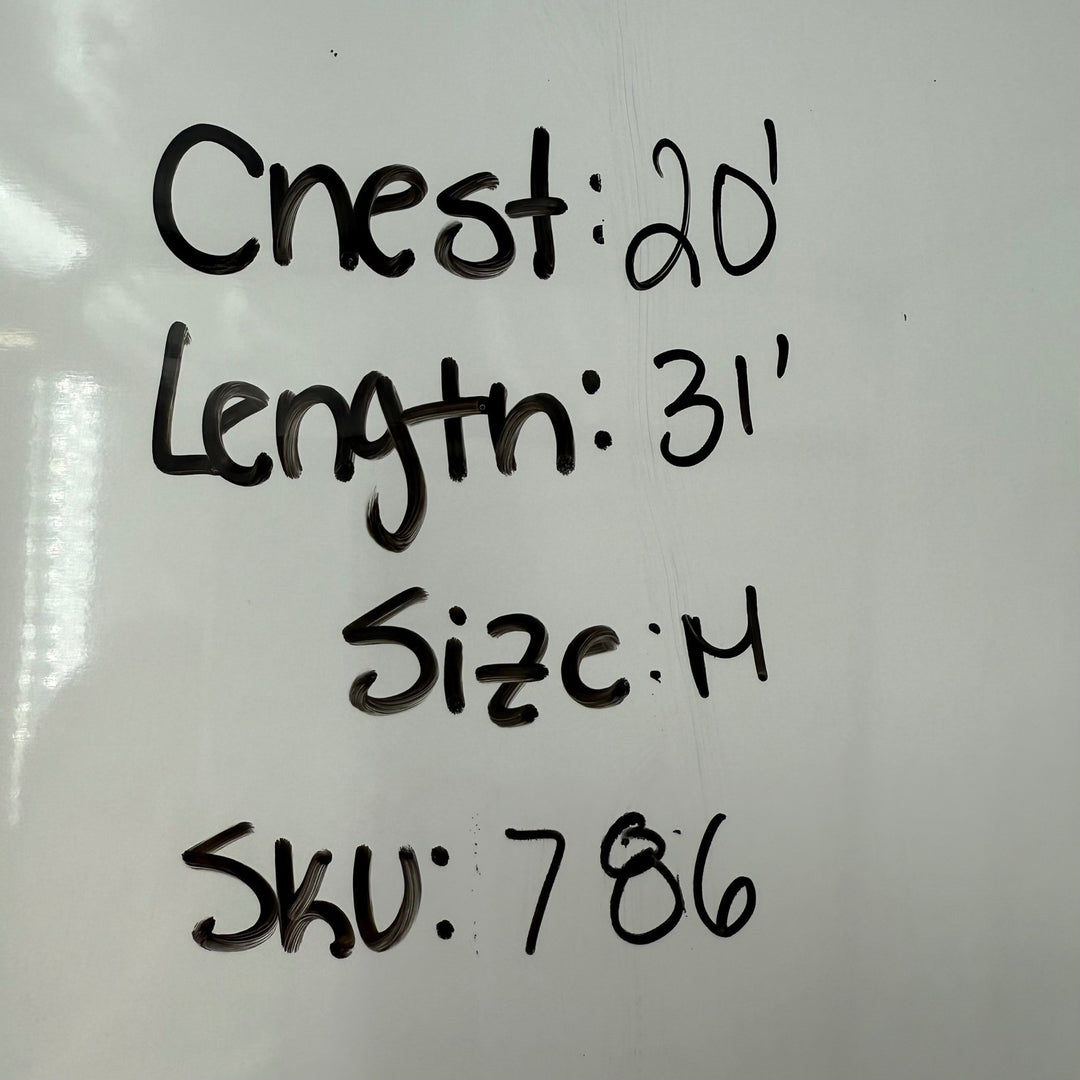 Chest: 20'
Length: 31'
Size: M
SKU: 786